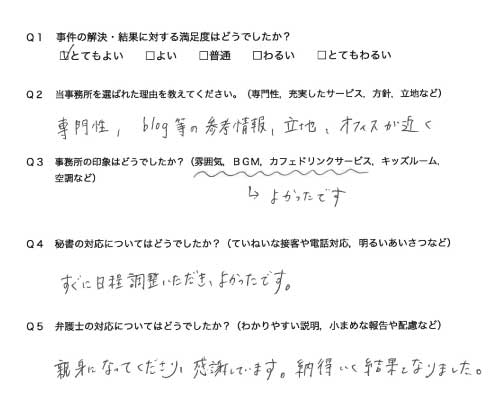 Q1 事件の解決・結果に対する満足度はどうでしたか？
☑とてもよい □よい □普通 □わるい □とてもわるい
Q2 当事務所を選ばれた理由を教えてください。（専門性，充実したサービス，方針，立地など）
専門性，blog等の参考情報，立地，オフィスが近く
Q3 事務所の印象はどうでしたか？（雰囲気，BGM，カフェドリンクサービス，キッズルーム，
空調など）
↳ よかったです
Q4 秘書の対応についてはどうでしたか？（ていねいな接客や電話対応，明るいあいさつなど）
すぐに日程調整いただき、よかったです。
Q5 弁護士の対応についてはどうでしたか？（わかりやすい説明，小まめな報告や配慮など）
親身になってくださり、感謝しています。納得いく結果となりました。